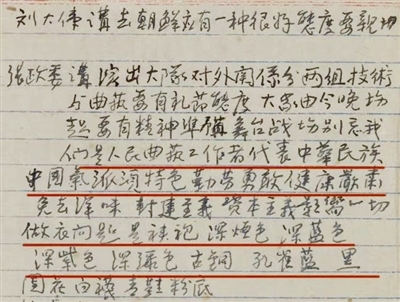 刘大伟講去朝鮮应有一种很好態度要親切
张政委講演出大隊对外関係分两组技術
与曲藝要有礼節態度 大家由今晚场
起要有精神準備舞台战场别忘我
们是人民曲藝工作者代表中華民族
中国氣派須特色勤劳勇敢健康嚴肅
免去 味 封建主義 資本主義影響一切
做衣问题是袂袍 深烟色 深蓝色
深紫色 深绿色 古銅 孔雀蓝 黑
圆花白襪青鞋粉底